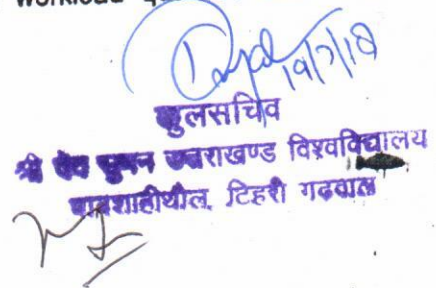 Workload
19/7/18
कुलसचिव
श्री देव सुमन उत्तराखण्ड विश्वविद्यालय
बादशाहीथौल, टिहरी गढवाल